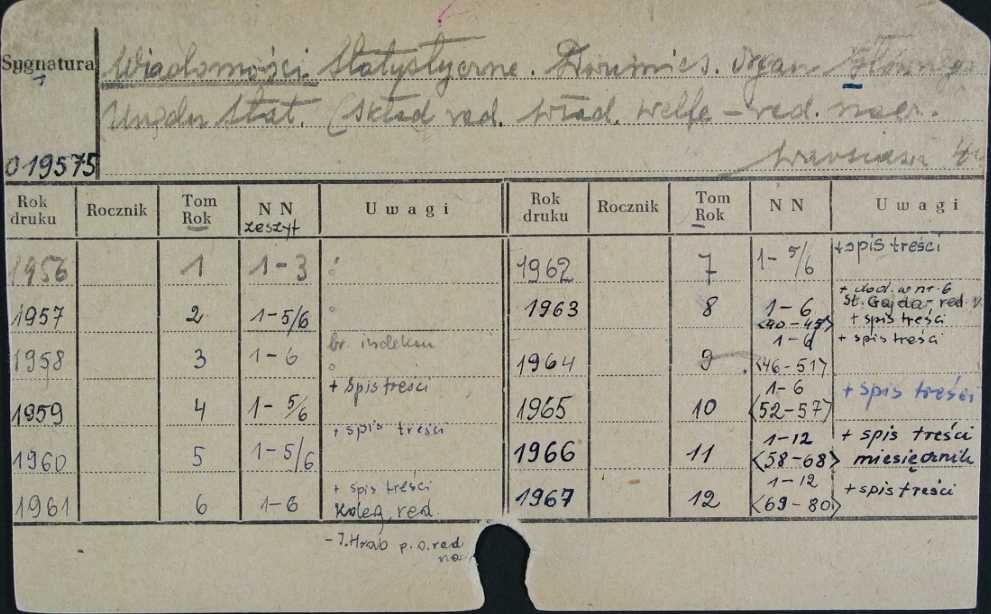 Sygnatura Wiadomości Statystyczne. Dwumies. Organ Głównego
Urzędu Stat. (Skład red. Wład. Welfe – red. nacz.
019575 Warszawa
Rok druku Rocznik Tom Rok N N zeszyt Uwagi Rok druku Rocznik Tom Rok N N Uwagi
1956 1 1-3 1962 7 1-5/6 + spis treści
1957 2 1-5/6 1963 8 1-6 <40-45> + dod. w nr 6 St. Gajda, red. + spis treści
1958 3 1-6 br. indeksu 1964 9 1-6 <46-51> + spis treści
1959 4 1-5/6 + spis treści 1965 10 1-6 <52-57> + spis treści
1960 5 1-5/6 + spis treści 1966 11 1-12 <58-68> + spis treści miesięcznik
1961 6 1-6 + spis treści Koleg. red. 1967 12 1-12 <69-80> + spis treści
- J. Hrab p.o. red
na